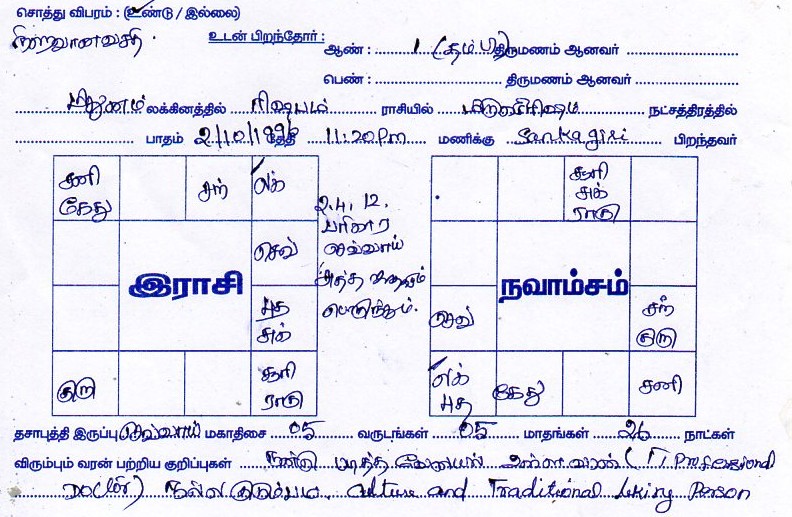 சொத்து விபரம் : (உண்டு / இல்லை)
உடன் பிறந்தோர் : ஆண் : 1 (தம்பி) திருமணம் ஆனவர்
பெண் : திருமணம் ஆனவர்
மிதுனம் லக்கினத்தில் ரிஷபம் ராசியில் மிருகசீரிஷம் நட்சத்திரத்தில்
பாதம் 2/10/1996 தேதி 11:20pm மணிக்கு Sankagiri பிறந்தவர்
சனி கேது
சந்
லக்
செவ்
புத சுக்
சூரி ராகு
குரு
இராசி
2.4.12.
செவ்வாய்
சூரி சுக் ராகு
செவ்
சந் குரு
லக் புத
கேது
சனி
நவாம்சம்
தசாபுத்தி இருப்பு செவ்வாய் மகாதிசை 05 வருடங்கள் 05 மாதங்கள் 26 நாட்கள்
விரும்பும் வரன் பற்றிய குறிப்புகள் நன்கு படித்த வேலையில் உள்ளவரன் (IT Professional
Doctor) நல்ல குடும்பம். Culture and Traditional liking Person